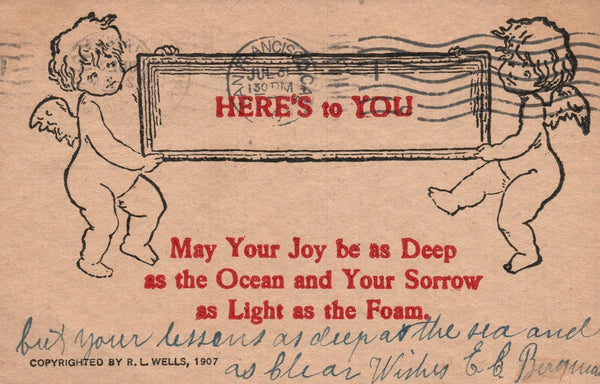 SAN FRANCISCO, CAL.
JUL 31
1 30 PM
1
HERE'S to YOU
May Your Joy be as Deep
as the Ocean and Your Sorrow
as Light as the Foam.
but your lessons as deep as the sea and
as Clear Wishes E. C. Bergman
COPYRIGHTED BY R. L. WELLS, 1907